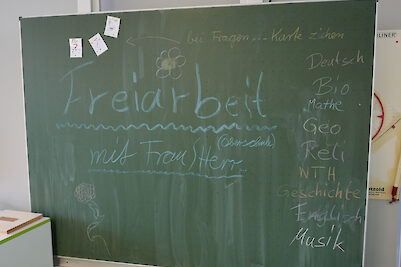 bei Fragen... Karte ziehen
Freiarbeit
mit Frau/Herr...
Deutsch
Bio
Mathe
Geo
Reli
NTH
Geschichte
Englisch
Musik